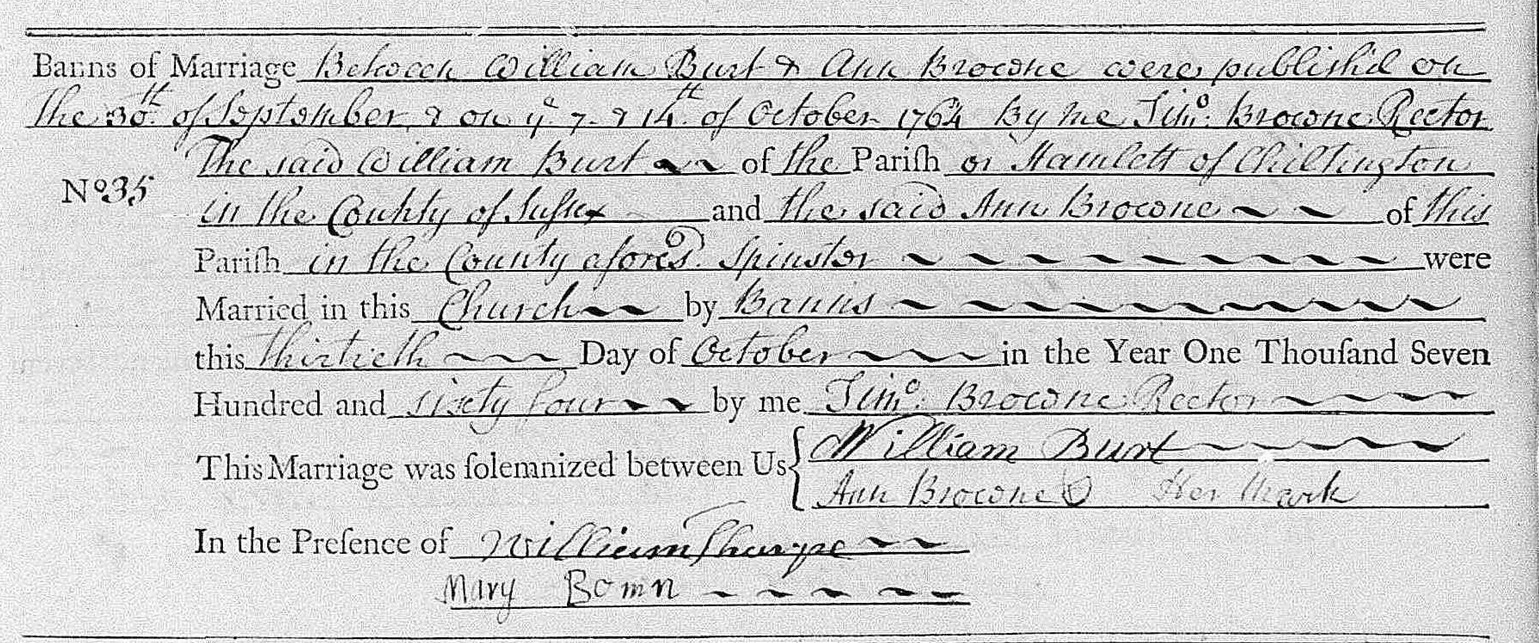 Banns of Marriage Between William Burt & Ann Browne were publish'd on
the 30th. of September & on ye. 7. & 14th. of October 1764 By me Timo. Browne Rector
The said William Burt of the Pariſh or Hamlett of Chiltington
No 35
in the County of Suſsex and the said Ann Browne of this
Pariſh in the County afores'd. Spinster were
Married in this Church by Banns
this thirtieth Day of October in the Year One Thouſand Seven
Hundred and sixty four by me Timo. Browne Rector
This Marriage was ſolemnized between Us William Burt
Ann Browne O Her Mark
In the Preſence of William Tharpe
Mary Bomn